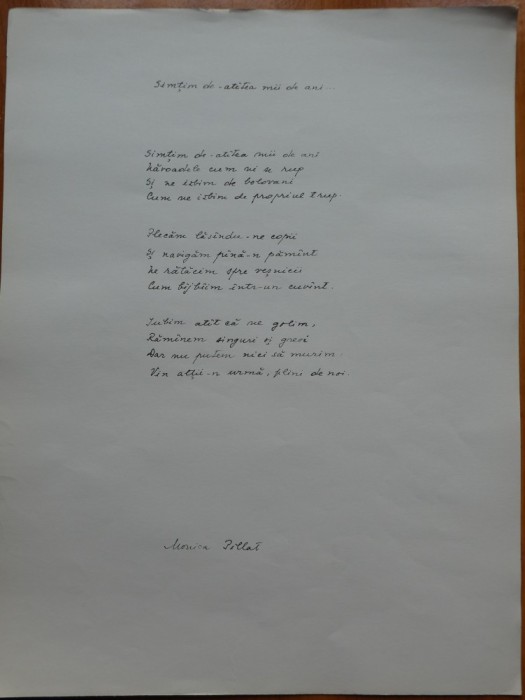 Simțim de-atîtea mii de ani...
Simțim de-atîtea mii de ani
Năroadele cum ni se rup
Și ne izbim de bolovani
Cum ne izbim de propriul trup.
Plecăm lăsîndu-ne copii
Și navigăm pînă-n pămînt
Ne rătăcim spre veșnicii
Cum bîjbîim într-un cuvînt.
Iubim atît că ne golim,
Rămînem singuri și greoi
Dar nu putem nici să murim.
Vin alții-n urmă, plini de noi.
Monica Pillat